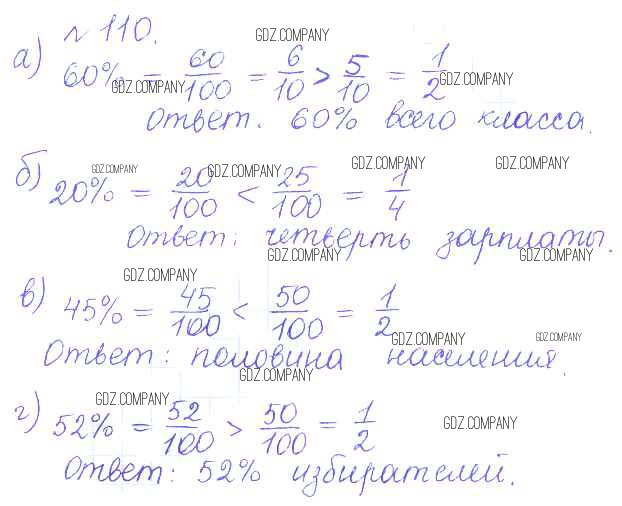 № 110.
GDZ.COMPANY
а) 60% = 60/100 = 6/10 > 5/10 = 1/2
GDZ.COMPANY GDZ.COMPANY
Ответ. 60% всего класса.
GDZ.COMPANY GDZ.COMPANY GDZ.COMPANY GDZ.COMPANY
б) 20% = 20/100 < 25/100 = 1/4
Ответ: четверть зарплаты.
GDZ.COMPANY GDZ.COMPANY
GDZ.COMPANY
в) 45% = 45/100 < 50/100 = 1/2
GDZ.COMPANY GDZ.COMPANY
Ответ: половина населения.
GDZ.COMPANY
GDZ.COMPANY
г) 52% = 52/100 > 50/100 = 1/2
GDZ.COMPANY
Ответ: 52% избирателей.